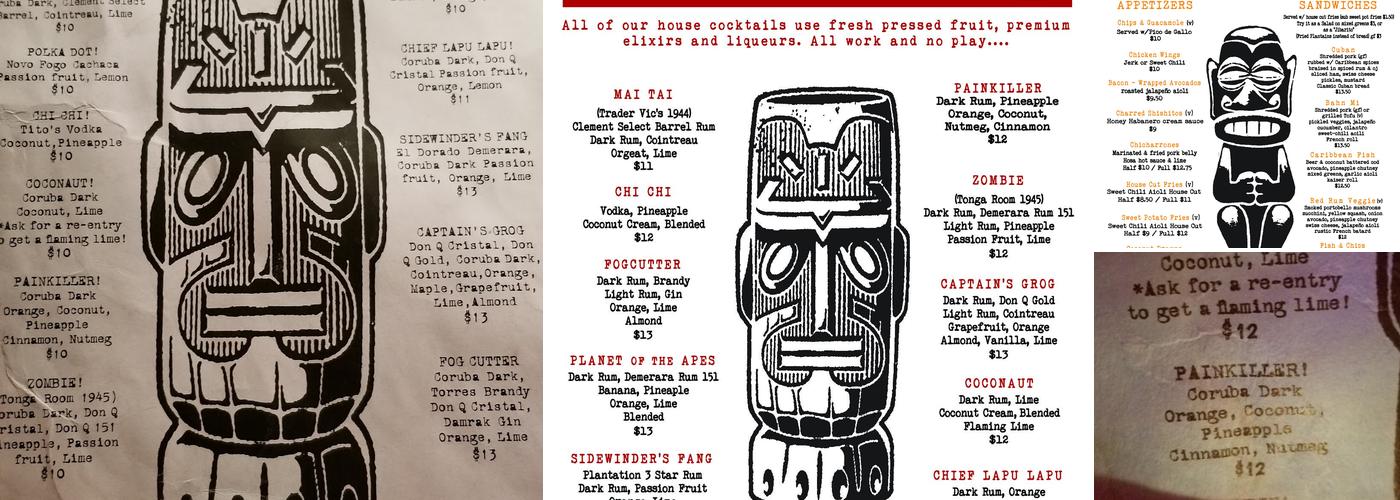 $10
POLKA DOT!
Novo Fogo Cachaca
Passion fruit, Lemon
$10
CHI CHI!
Tito's Vodka
Coconut, Pineapple
$10
COCONAUT!
Coruba Dark
Coconut, Lime
*Ask for a re-entry
to get a flaming lime!
$10
PAINKILLER!
Coruba Dark
Orange, Coconut,
Pineapple
Cinnamon, Nutmeg
$10
ZOMBIE!
(Tonga Room 1945)
Coruba Dark, Don Q
Cristal, Don Q 151
Pineapple, Passion
fruit, Lime
$10
$10
CHIEF LAPU LAPU!
Coruba Dark, Don Q
Cristal Passion fruit,
Orange, Lemon
$11
SIDEWINDER'S FANG
El Dorado Demerara,
Coruba Dark Passion
fruit, Orange, Lime
$13
CAPTAIN'S GROG
Don Q Cristal, Don
Q Gold, Coruba Dark,
Cointreau, Orange,
Maple, Grapefruit,
Lime, Almond
$13
FOG CUTTER
Coruba Dark,
Torres Brandy
Don Q Cristal,
Damrak Gin
Orange, Lime
$13
All of our house cocktails use fresh pressed fruit, premium
elixirs and liqueurs. All work and no play....
MAI TAI
(Trader Vic's 1944)
Clement Select Barrel Rum
Dark Rum, Cointreau
Orgeat, Lime
$11
CHI CHI
Vodka, Pineapple
Coconut Cream, Blended
$12
FOGCUTTER
Dark Rum, Brandy
Light Rum, Gin
Orange, Lime
Almond
$13
PLANET OF THE APES
Dark Rum, Demerara Rum 151
Banana, Pineaple
Orange, Lime
Blended
$13
SIDEWINDER'S FANG
Plantation 3 Star Rum
Dark Rum, Passion Fruit
PAINKILLER
Dark Rum, Pineapple
Orange, Coconut,
Nutmeg, Cinnamon
$12
ZOMBIE
(Tonga Room 1945)
Dark Rum, Demerara Rum 151
Light Rum, Pineapple
Passion Fruit, Lime
$12
CAPTAIN'S GROG
Dark Rum, Don Q Gold
Light Rum, Cointreau
Grapefruit, Orange
Almond, Vanilla, Lime
$13
COCONAUT
Dark Rum, Lime
Coconut Cream, Blended
Flaming Lime
$12
CHIEF LAPU LAPU
Dark Rum, Orange
APPETIZERS
Chips & Guacamole (v)
Served w/Pico de Gallo
$10
Chicken Wings
Jerk or Sweet Chili
$10
Bacon - Wrapped Avocados
roasted jalapeño aioli
$9.50
Charred Shishitos (v)
Honey Habanero cream sauce
$9
Chicharrones
Marinated & fried pork belly
Hoisin hot sauce & lime
Half $10 / Full $12.75
House Cut Fries (v)
Sweet Chili Aioli House Cut
Half $8.50 / Full $11
Sweet Potato Fries (v)
Sweet Chili Aioli House Cut
Half $9 / Full $12
SANDWICHES
Served w/ house cut fries (sub sweet pot fries $1.50)
Try it as a Salad on mixed greens $3, or
as a "Jibarito"
(Fried Plantains instead of bread) gf $3
Cuban
Shredded pork (gf)
rubbed w/ Caribbean spices
braised in spiced rum & oj
sliced ham, swiss cheese
pickles, mustard
Classic Cuban bread
$13.50
Bahn Mi
Shredded pork (gf) or
grilled Tofu (v)
pickled veggies, jalapeño
cucumber, cilantro
sweet-chili aioli
French roll
$13.50
Caribbean Fish
Beer & coconut battered cod
avocado, pineapple chutney
mixed greens, garlic aioli
kaiser roll
$12.50
Red Rum Veggie (v)
Stacked portobello mushrooms
zucchini, yellow squash, onion
avocado, pineapple chutney
swiss cheese, jalapeño aioli
rustic French batard
$12
Fish & Chips
Coconut, Lime
*Ask for a re-entry
to get a flaming lime!
$12
PAINKILLER!
Coruba Dark
Orange, Coconut,
Pineapple
Cinnamon, Nutmeg
$12